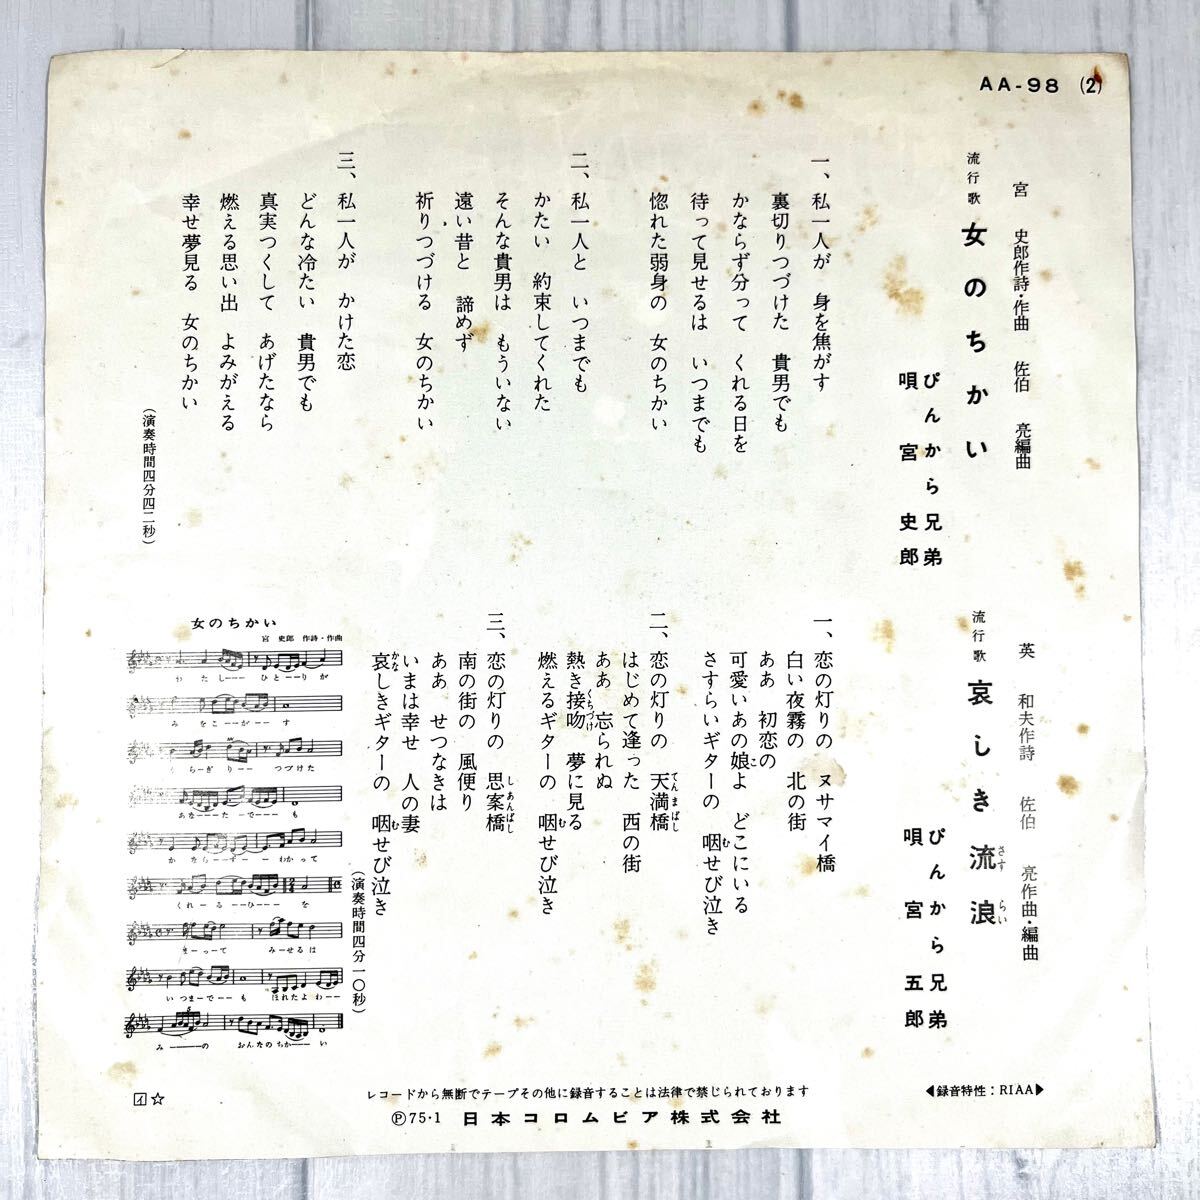 AA-98 (2)
宮 史郎作詩・作曲 佐伯 亮編曲
流行歌 女のちかい
ぴんから兄弟
唄 宮 史郎
一、私一人が 身を焦がす
裏切りつづけた 貴男でも
かならず分って くれる日を
待って見せるは いつまでも
惚れた弱身の 女のちかい
二、私一人と いつまでも
かたい 約束してくれた
そんな貴男は もういない
遠い昔と 諦めず
祈りつづける 女のちかい
三、私一人が かけた恋
どんな冷たい 貴男でも
真実つくして あげたなら
燃える思い出 よみがえる
幸せ夢見る 女のちかい
（演奏時間四分四二秒）
英 和夫作詩 佐伯 亮作曲・編曲
流行歌 哀しき流浪
さすらい
ぴんから兄弟
唄 宮 五郎
一、恋の灯りの ヌサマイ橋
白い夜霧の 北の街
ああ 初恋の
可愛いあの娘よ どこにいる
こ
さすらいギターの 咽せび泣き
む
二、恋の灯りの 天満橋
てんまばし
はじめて逢った 西の街
ああ 忘られぬ
熱き接吻 夢に見る
くちづけ
燃えるギターの 咽せび泣き
む
三、恋の灯りの 思案橋
しあんばし
南の街の 風便り
ああ せつなきは
いまは幸せ 人の妻
哀しきギターの 咽せび泣き
かな
む
（演奏時間四分一〇秒）
女のちかい
宮 史郎 作詩・作曲
わたし―― ひと―りが
みをこ――が―す
うら―ぎり―― つづけた
あな――た―で――も
かなら――ず―― わかって
くれ―る――ひ――を
ま―っ―て み―せるは
いつま―で――も ほれたよわ――
み――――の おんなのちか――い
レコードから無断でテープその他に録音することは法律で禁じられております
◀録音特性：RIAA▶
イ☆
Ⓟ75・1 日本コロムビア株式会社